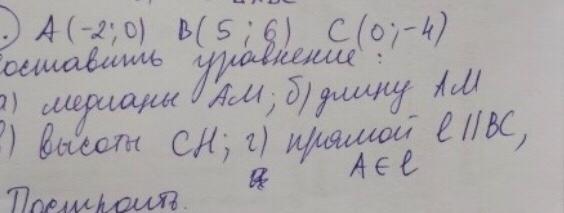 А(-2;0) В(5;6) С(0;-4)
оставить уравнение:
а) медианы АМ; б) длину АМ
) высоты СН; г) прямой ℓ||ВС,
А∈ℓ
Построить.